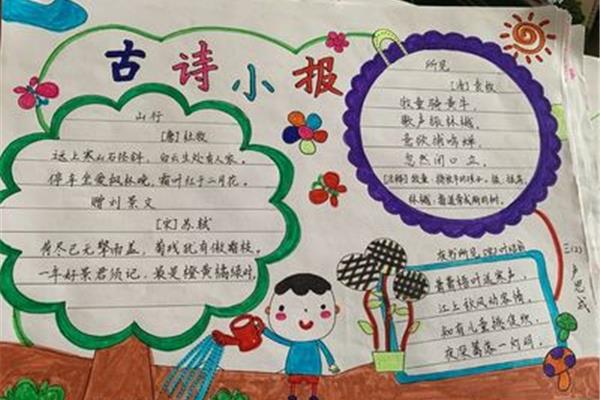 古诗小报
山行
[唐]杜牧
远上寒山石径斜，白云生处有人家。
停车坐爱枫林晚，霜叶红于二月花。
赠刘景文
[宋]苏轼
荷尽已无擎雨盖，菊残犹有傲霜枝。
一年好景君须记，最是橙黄橘绿时。
所见
袁枚
牧童骑黄牛，
歌声振林樾。
意欲捕鸣蝉，
忽然闭口立。
[注释]牧童：
林樾：
夜书所见 [宋]叶绍翁
萧萧梧叶送寒声，
江上秋风动客情。
知有儿童挑促织，
夜深篱落一灯明。
三(2)